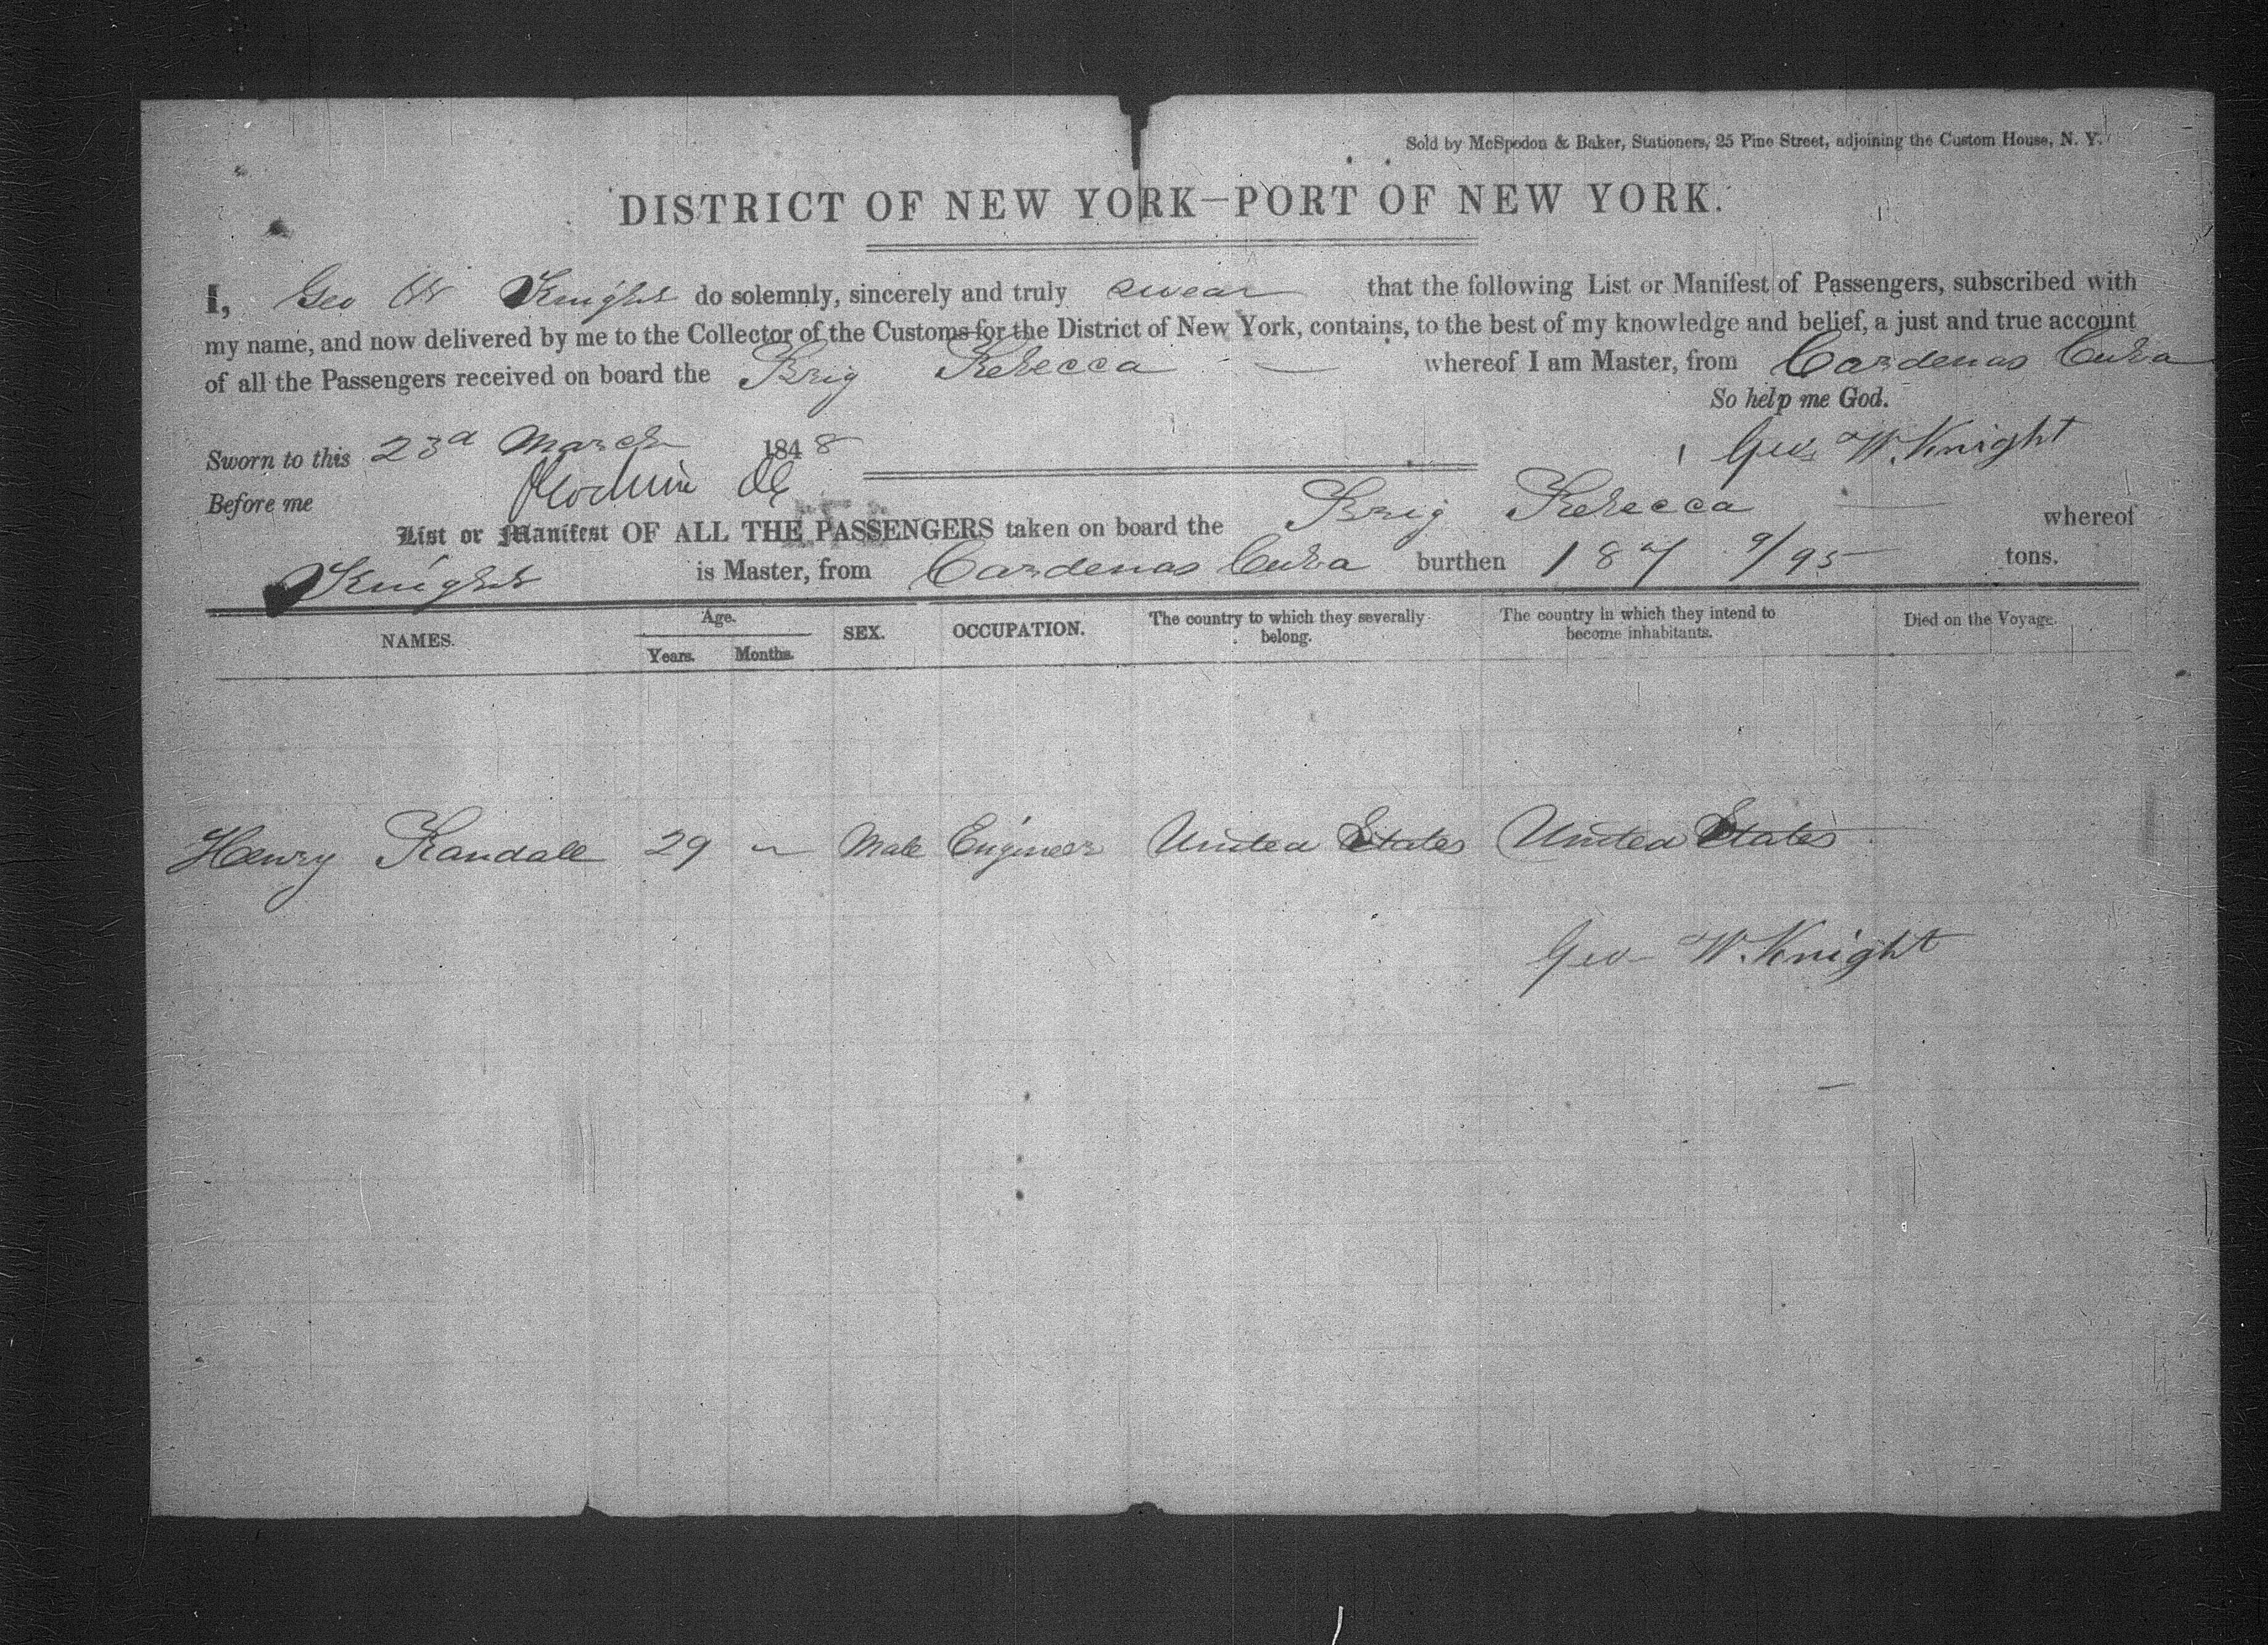 Sold by McSpedon & Baker, Stationers, 25 Pine Street, adjoining the Custom House, N. Y.
DISTRICT OF NEW YORK—PORT OF NEW YORK.
I, Geo W Knight do solemnly, sincerely and truly swear that the following List or Manifest of Passengers, subscribed with
my name, and now delivered by me to the Collector of the Customs for the District of New York, contains, to the best of my knowledge and belief, a just and true account
of all the Passengers received on board the Brig Rebecca whereof I am Master, from Cardenas Cuba
So help me God.
Sworn to this 23d March 1848 Geo W. Knight
Before me
List or Manifest OF ALL THE PASSENGERS taken on board the Brig Rebecca whereof
Knight is Master, from Cardenas Cuba burthen 187 9/95 tons.
NAMES. Age. Years. Months. SEX. OCCUPATION. The country to which they severally belong. The country in which they intend to become inhabitants. Died on the Voyage.
Henry Randall 29 — Male Engineer United States United States
Geo W. Knight